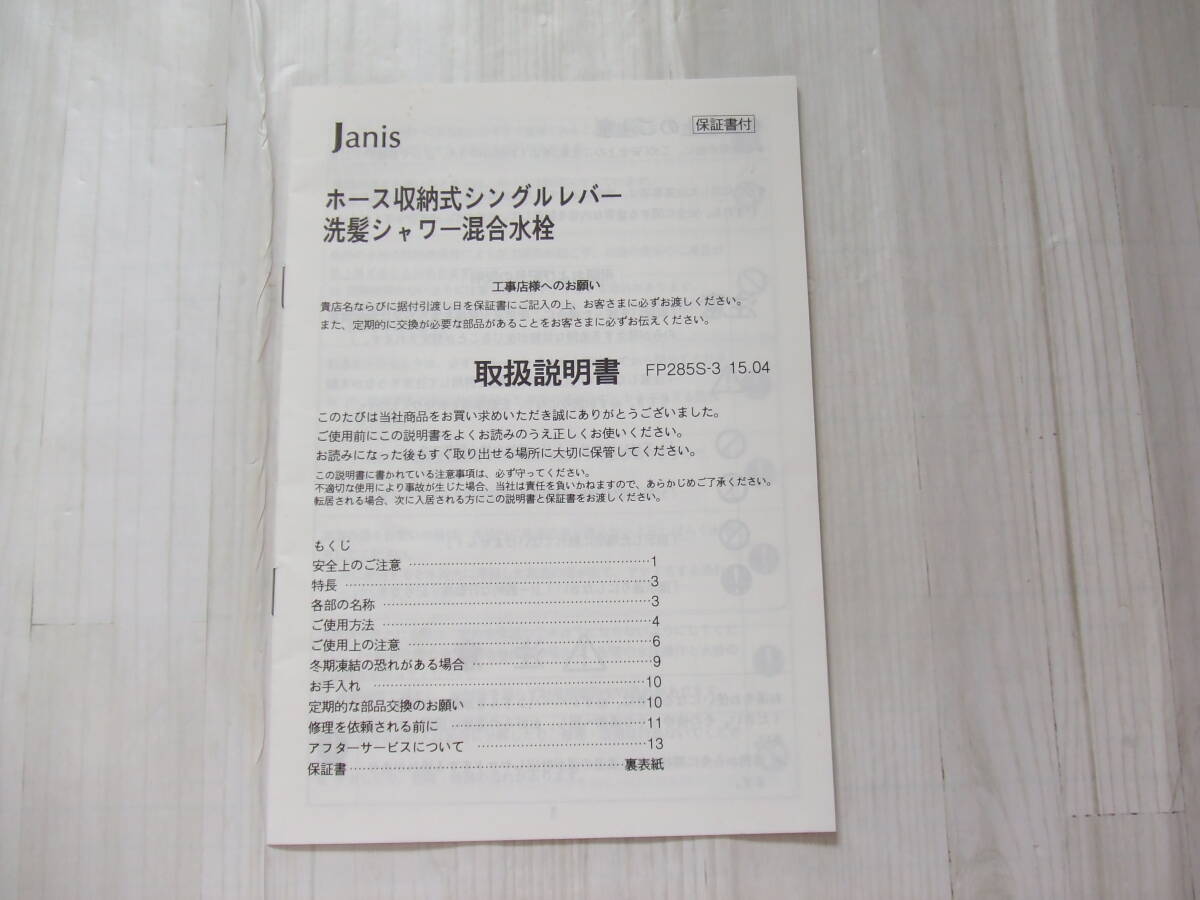 Janis
保証書付
ホース収納式シングルレバー
洗髪シャワー混合水栓
工事店様へのお願い
貴店名ならびに据付引渡し日を保証書にご記入の上、お客さまに必ずお渡しください。
また、定期的に交換が必要な部品があることをお客さまに必ずお伝えください。
取扱説明書 FP285S-3 15.04
このたびは当社商品をお買い求めいただき誠にありがとうございました。
ご使用前にこの説明書をよくお読みのうえ正しくお使いください。
お読みになった後もすぐ取り出せる場所に大切に保管してください。
この説明書に書かれている注意事項は、必ず守ってください。
不適切な使用により事故が生じた場合、当社は責任を負いかねますので、あらかじめご了承ください。
転居される場合、次に入居される方にこの説明書と保証書をお渡しください。
もくじ
安全上のご注意 ………………………………1
特長 ………………………………………3
各部の名称 …………………………………3
ご使用方法 …………………………………4
ご使用上の注意 ………………………………6
冬期凍結の恐れがある場合 ………………………9
お手入れ …………………………………10
定期的な部品交換のお願い ……………………10
修理を依頼される前に ………………………11
アフターサービスについて ……………………13
保証書 …………………………………裏表紙